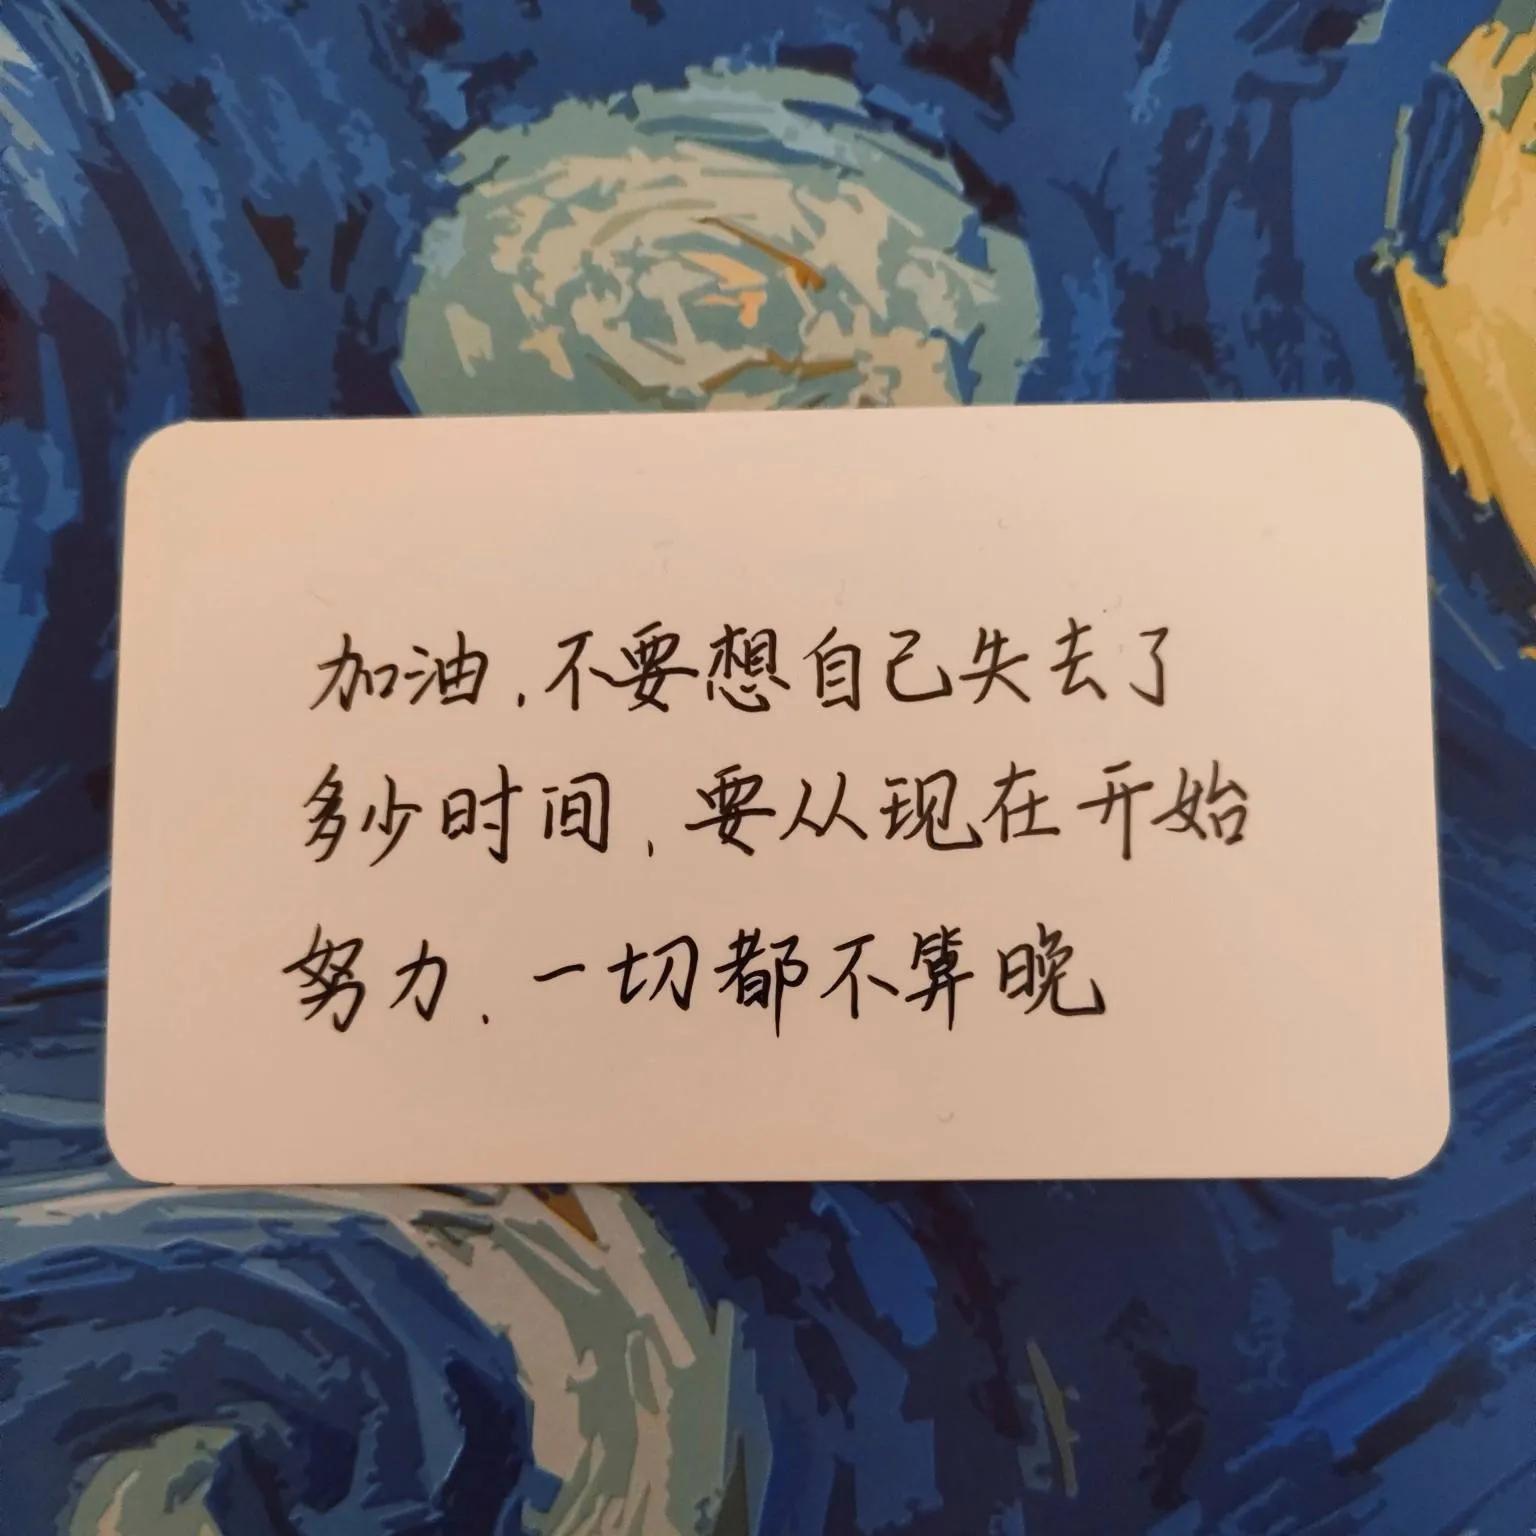 加油,不要想自己失去了
多少时间,要从现在开始
努力,一切都不算晚